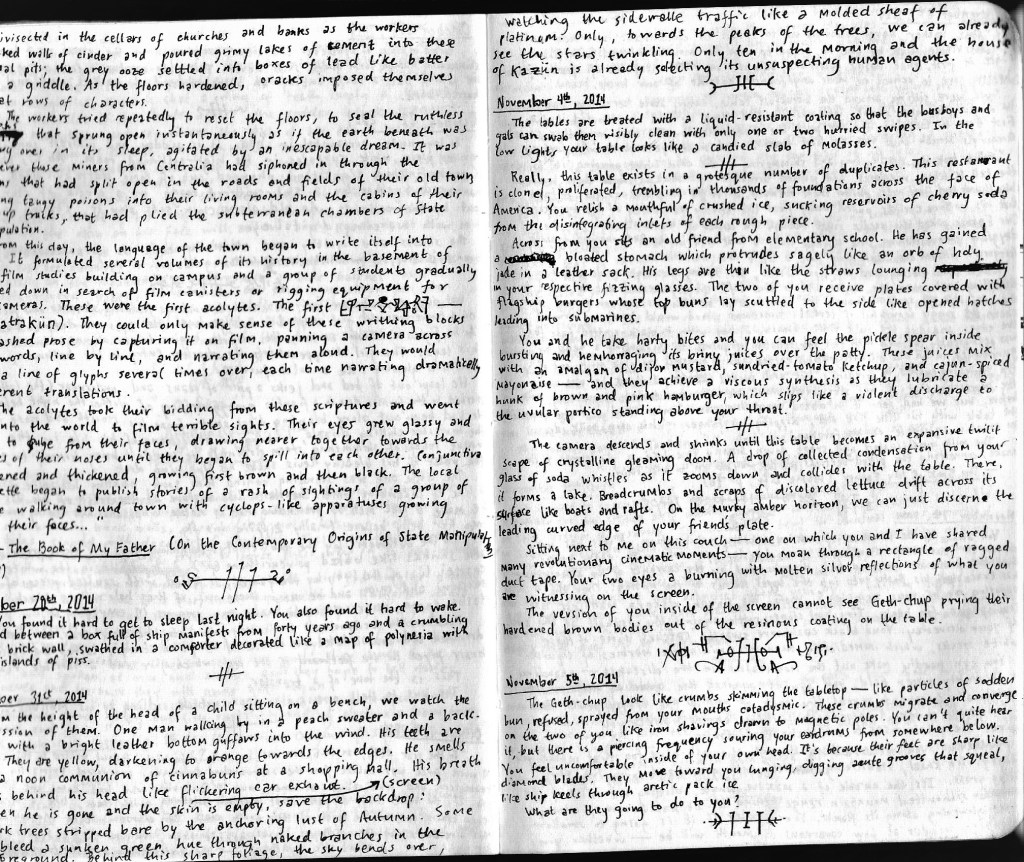 ivisected in the cellars of churches and banks as the workers
ked walls of cinder and poured grimy lakes of cement into these
al pits; the grey ooze settled into boxes of lead like batter
a griddle. As the floors hardened, oracks imposed themselves
at rows of characters.
The workers tried repeatedly to reset the floors, to seal the ruthless
that sprung open instantaneously as if the earth beneath was
over in its sleep, agitated by an inescapable dream. It was
ever those miners from Centralia had siphoned in through the
ns that had split open in the roads and fields of their old town
ng tangy poisons into their living rooms and the cabins of their
up trucks, that had plied the subterranean chambers of State
pulation.
rom this day, the language of the town began to write itself into
It formulated several volumes of its history in the basement of
film studies building on campus and a group of students gradually
ed down in search of film canisters or rigging equipment for
ameras. These were the first acolytes. The first
atrakün). They could only make sense of these writhing blocks
ashed prose by capturing it on film, panning a camera across
words, line by line, and narrating them aloud. They would
a line of glyphs several times over, each time narrating dramatically
erent translations.
he acolytes took their bidding from these scriptures and went
nto the world to film terrible sights. Their eyes grew glassy and
to from their faces, drawing nearer together towards the
es of their noses until they began to spill into each other. Conjunctiva
ened and thickened, growing first brown and then black. The local
ette began to publish stories of a rash of sightings of a group of
e walking around town with cyclops-like apparatuses growing
their faces..."
- The Book of My Father (On the Contemporary Origins of State Manipulat
)
ber 28th, 2014
You found it hard to get to sleep last night. You also found it hard to wake.
d between a box full of ship manifests from forty years ago and a crumbling
brick wall, swathed in a comforter decorated like a map of polynesia with
islands of piss.
ber 31st, 2014
m the height of the head of a child sitting on a bench, we watch the
ssion of them. One man walking by in a peach sweater and a back-
with a bright leather bottom guffaws into the wind. His teeth are
They are yellow, darkening to orange towards the edges. He smells
a noon communion of cinnabuns at a shopping mall. His breath
s behind his head like flickering car exhaust. (screen)
en he is gone and the skin is empty, save the backdrop:
rk trees stripped bare by the anchoring lust of Autumn. Some
bleed a sunken green hue through naked branches in the
oreground. Behind this sharp foliage, the sky bends over,
watching the sidewalk traffic like a molded sheaf of
platinum. Only, towards the peaks of the trees, we can already
see the stars twinkling. Only ten in the morning and the house
of Kazün is already selecting its unsuspecting human agents.
November 4th, 2014
The tables are treated with a liquid-resistant coating so that the busboys and
gals can swab them visibly clean with only one or two hurried swipes. In the
low lights your table looks like a candied slab of molasses.
Really, this table exists in a grotesque number of duplicates. This restaurant
is cloned, proliferated, trembling in thousands of foundations across the face of
America. You relish a mouthful of crushed ice, sucking reservoirs of cherry soda
from the disintegrating inlets of each rough piece.
Across from you sits an old friend from elementary school. He has gained
a bloated stomach which protrudes sagely like an orb of holy
jade in a leather sack. His legs are thin like the straws lounging
in your respective fizzing glasses. The two of you receive plates covered with
flagship burgers whose top buns lay scuttled to the side like opened hatches
leading into submarines.
You and he take harty bites and you can feel the pickle spear inside
bursting and hemhorraging its briny juices over the patty. These juices mix
with an amalgam of dijon mustard, sundried-tomato ketchup, and cajun-spiced
mayonaise — and they achieve a viscous synthesis as they lubricate a
hunk of brown and pink hamburger, which slips like a violent discharge to
the uvular portico standing above your throat.
The camera descends and shrinks until this table becomes an expansive twilit
scape of crystalline gleaming doom. A drop of collected condensation from your
glass of soda whistles as it zooms down and collides with the table. There,
it forms a lake. Breadcrumbs and scraps of discolored lettuce drift across its
surface like boats and rafts. On the murky amber horizon, we can just discerne the
leading curved edge of your friends plate.
Sitting next to me on this couch — one on which you and I have shared
many revolutionary cinematic moments — you moan through a rectangle of ragged
duct tape. Your two eyes a burning with molten silver reflections of what you
are witnessing on the screen.
The version of you inside of the screen cannot see Geth-chup prying their
hardened brown bodies out of the resinous coating on the table.
November 5th, 2014
The Geth-chup look like crumbs skimming the tabletop — like particles of sodden
bun, refused, sprayed from your mouths These crumbs migrate and converge
on the two of you, like iron shavings drawn to magnetic poles. You can't quite hear
it, but there is a piercing frequency souring your eardrums from somewhere below.
You feel uncomfortable inside of your own head. It's because their feet are sharp like
diamond blades. They move toward you lunging, digging acute grooves that squeal,
like ship keels through arctic pack ice
What are they going to do to you?